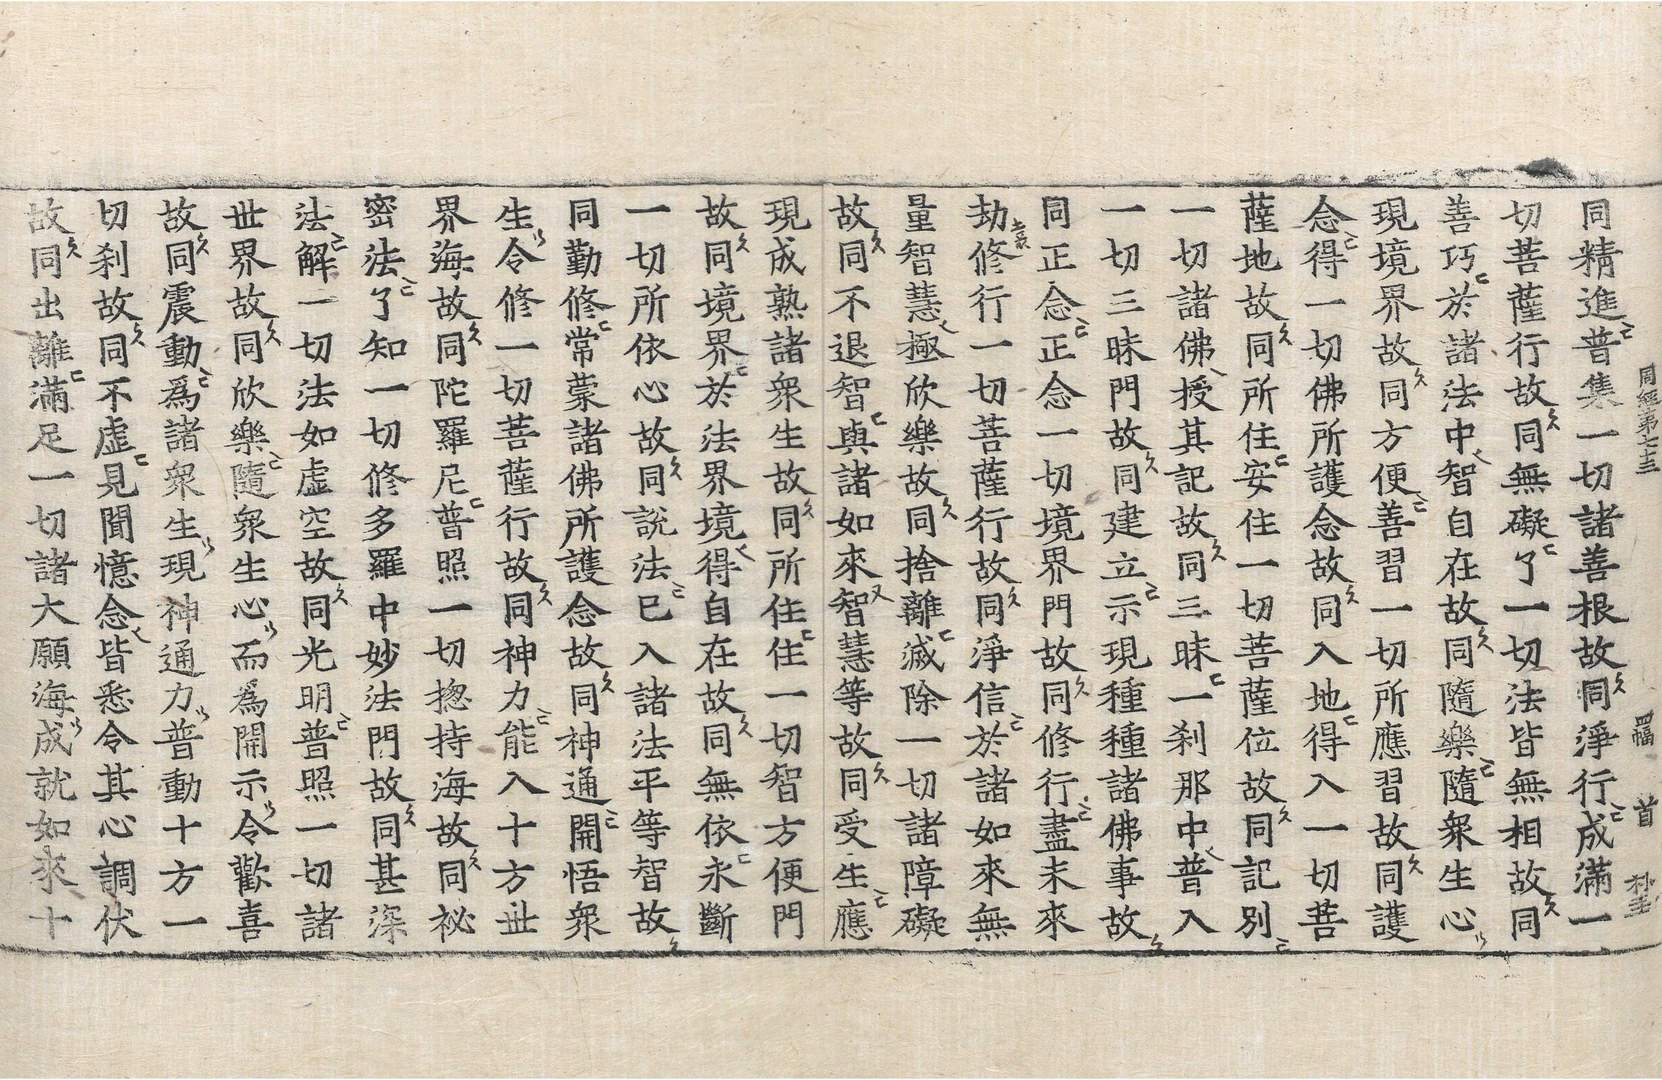 同經第七十三 四幅 首
同精進普集一切諸善根故同淨行成滿一
切菩薩行故同無礙了一切法皆無相故同
善巧於諸法中智自在故同隨樂隨衆生心
現境界故同方便善習一切所應習故同護
念得一切佛所護念故同入地得入一切菩
薩地故同所住安住一切菩薩位故同記別
一切諸佛授其記故同三昧一刹那中普入
一切三昧門故同建立示現種種諸佛事故
同正念正念一切境界門故同修行盡未來
劫修行一切菩薩行故同淨信於諸如來無
量智慧極欣樂故同捨離滅除一切諸障礙
故同不退智與諸如來智慧等故同受生應
現成熟諸衆生故同所住住一切智方便門
故同境界於法界境得自在故同無依永斷
一切所依心故同說法已入諸法平等智故
同勤修常蒙諸佛所護念故同神通開悟衆
生令修一切菩薩行故同神力能入十方世
界海故同陀羅尼普照一切揔持海故同祕
密法了知一切修多羅中妙法門故同甚深
法解一切法如虛空故同光明普照一切諸
世界故同欣樂隨衆生心而為開示令歡喜
故同震動為諸衆生現神通力普動十方一
切刹故同不虛見聞憶念皆悉令其心調伏
故同出離滿足一切諸大願海成就如來十